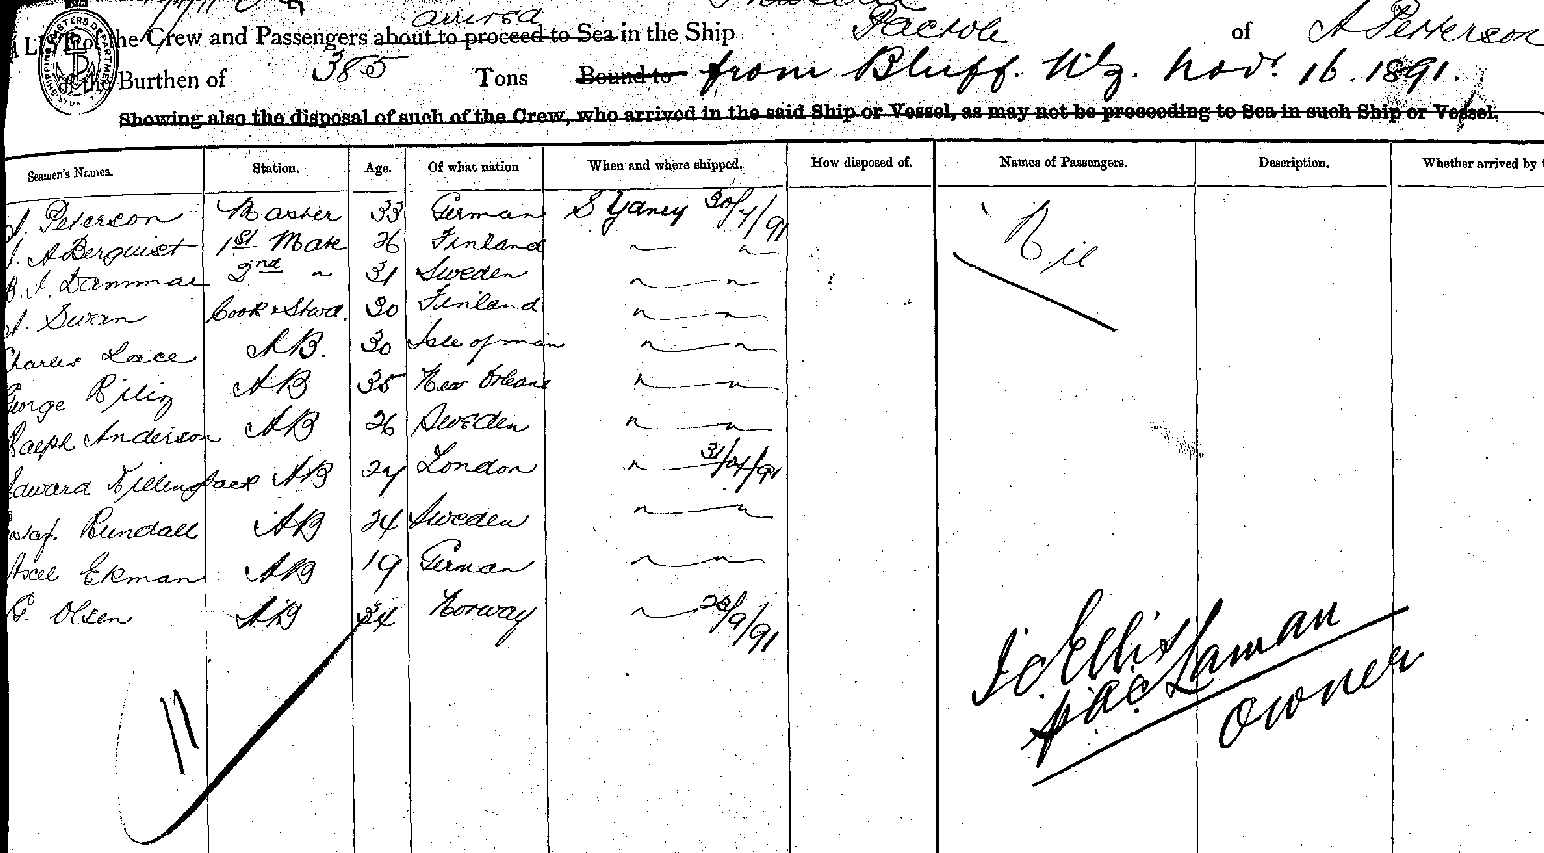 arrived
A List of the Crew and Passengers about to proceed to Sea in the Ship Pactole of A Peterson
of the Burthen of 385 Tons Bound to from Bluff. Nz. Nov. 16. 1891.
Showing also the disposal of such of the Crew, who arrived in the said Ship or Vessel, as may not be proceeding to Sea in such Ship or Vessel.
Seamen's Names. Station. Age. Of what nation When and where shipped. How disposed of. Names of Passengers. Description. Whether arrived by
A. Peterson Master 33 German Sydney 30/7/91 Nil
A Berquist 1st Mate 26 Finland " "
2nd " 31 Sweden " "
A. Swan Cook & Stwd. 30 Finland " "
Charles Lace AB. 30 Isle of man " "
George Riley AB 35 New Orleans " "
Ralph Anderson AB 26 Sweden " "
Edward Killingback AB 27 London " 31/7/91
Gustaf. Rundall AB 24 Sweden " "
Axcel Ekman AB 19 German " "
G. Olsen AB 34 Norway " 26/9/91
11
J C Ellis
Laman
Owner